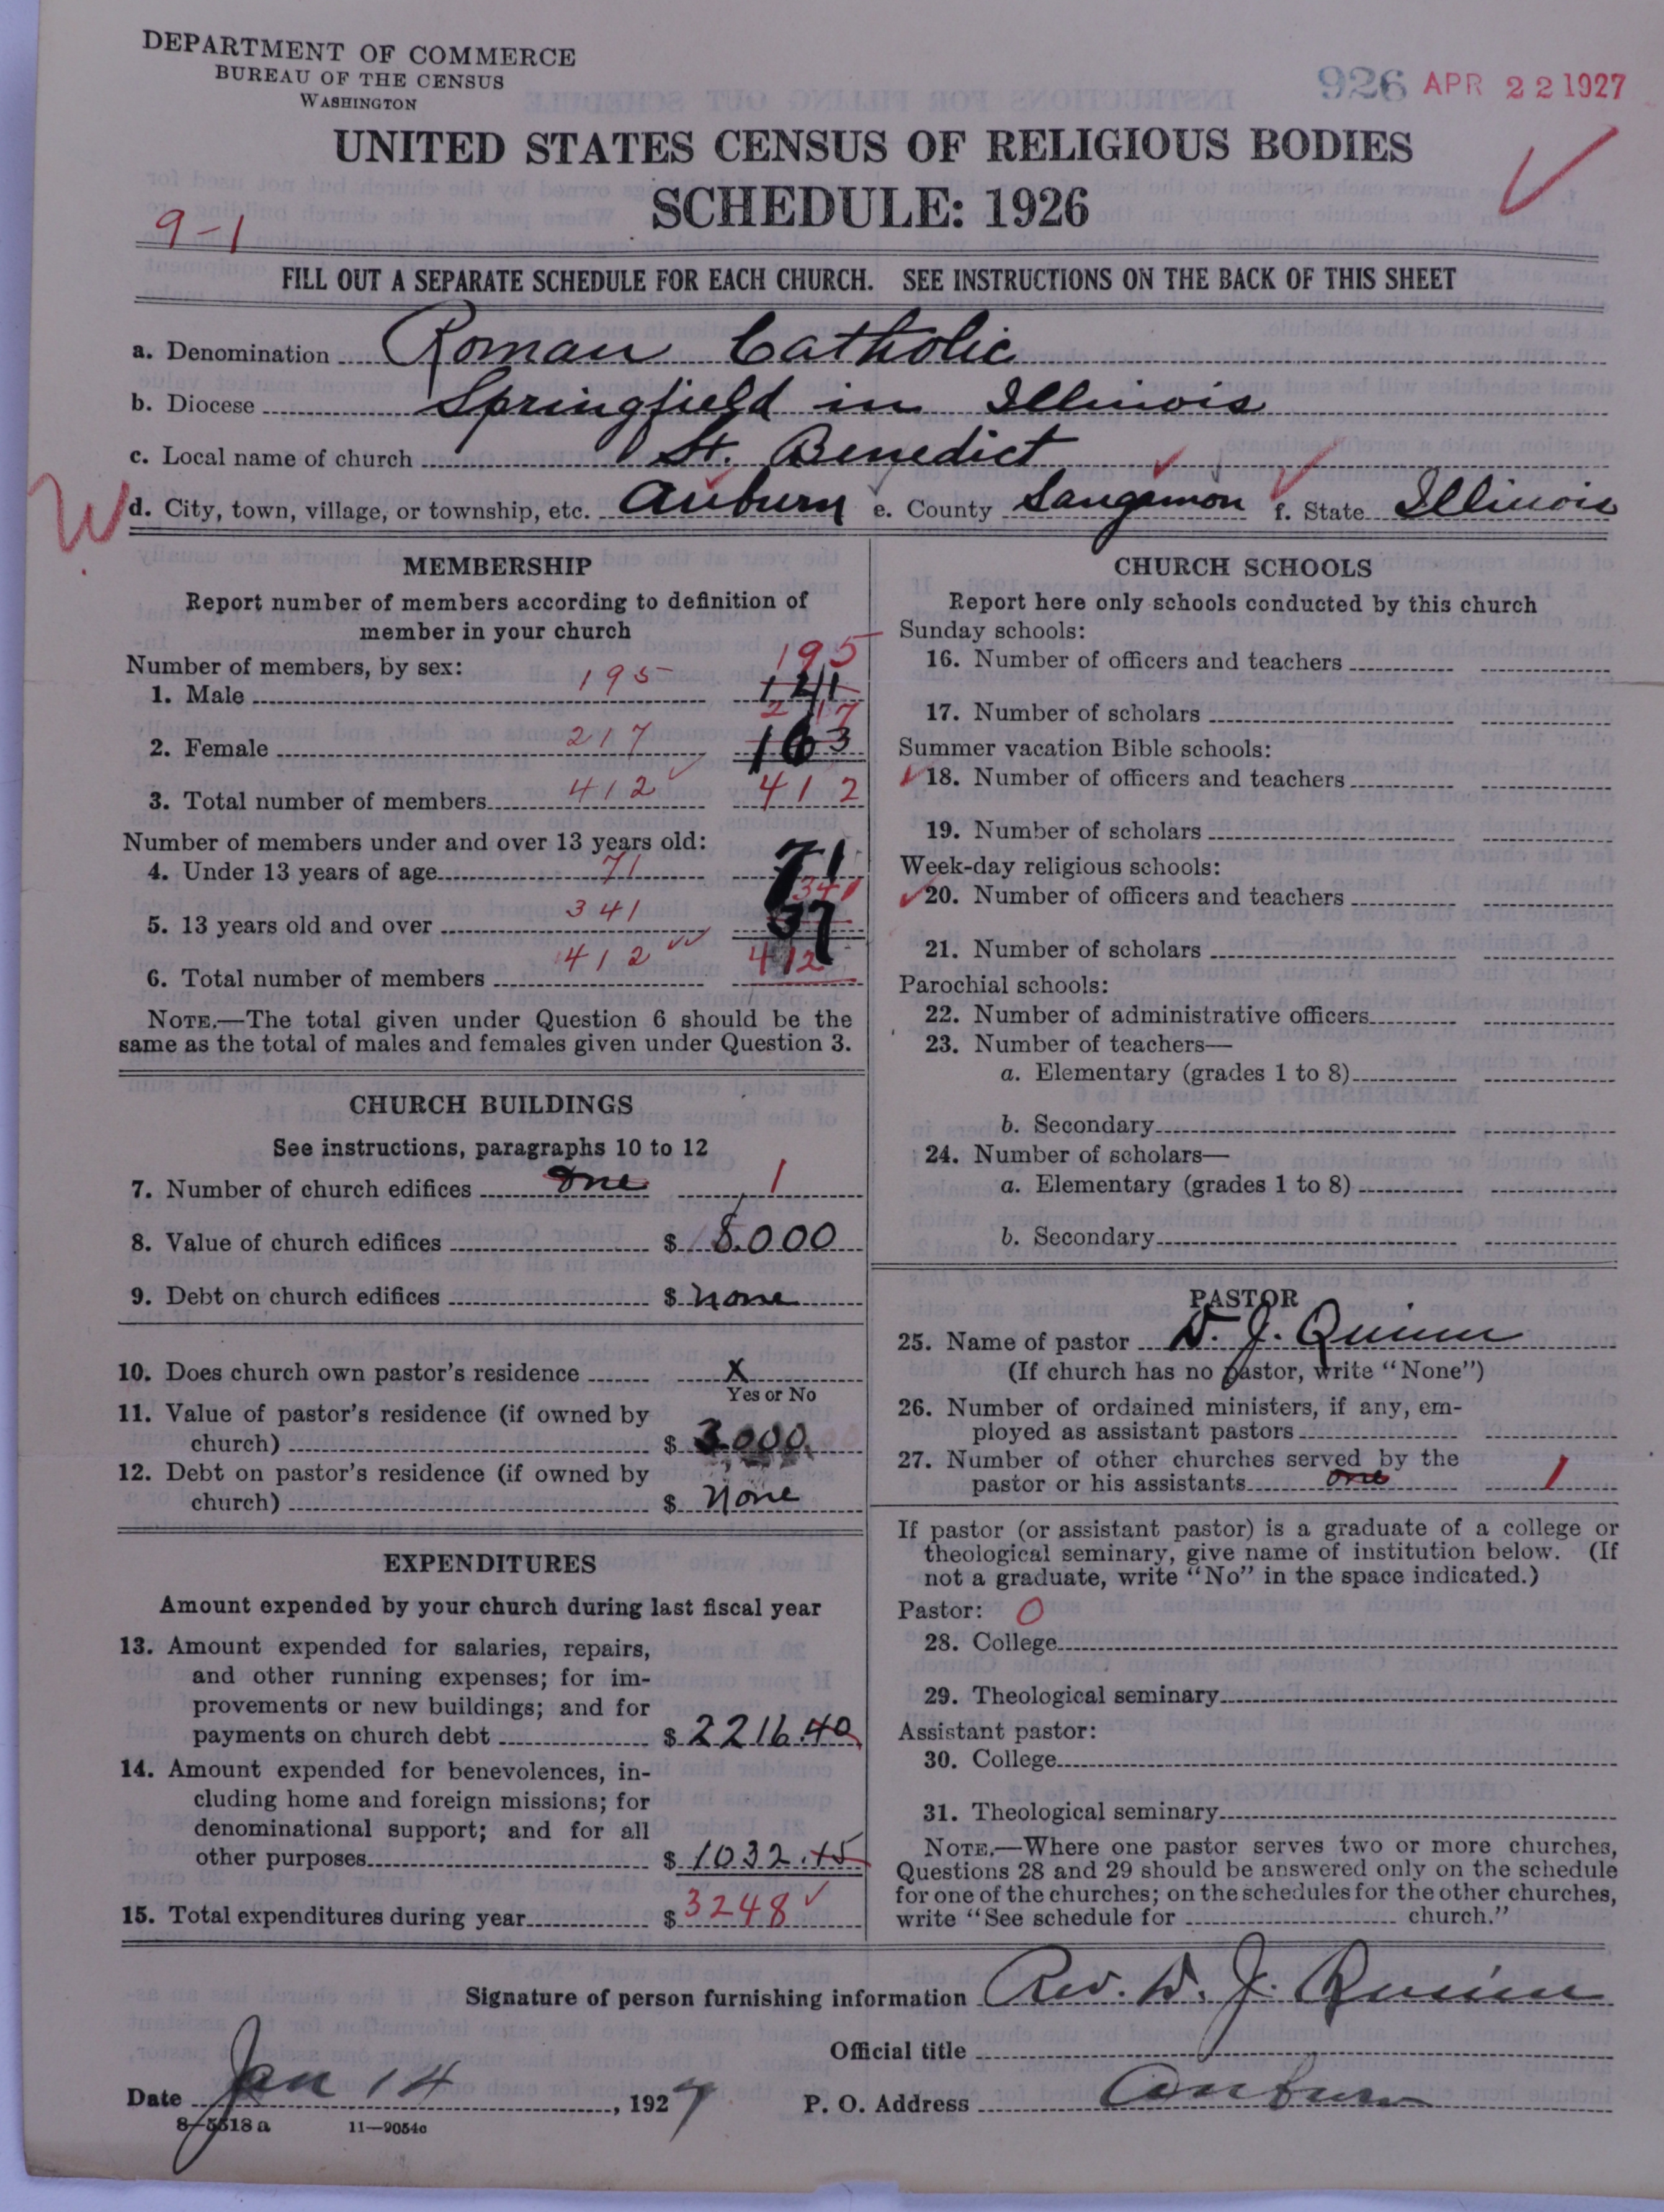 DEPARTMENT OF COMMERCE
BUREAU OF THE CENSUS
WASHINGTON
926 APR 22 1927
UNITED STATES CENSUS OF RELIGIOUS BODIES
SCHEDULE: 1926
9-1
FILL OUT A SEPARATE SCHEDULE FOR EACH CHURCH. SEE INSTRUCTIONS ON THE BACK OF THIS SHEET
a. Denomination Roman Catholic
b. Diocese Springfield in Illinois
c. Local name of church St. Benedict
W d. City, town, village, or township, etc. Auburn e. County Sangamon f. State Illinois
MEMBERSHIP
Report number of members according to definition of
member in your church
195
Number of members, by sex:
1. Male 195 141
217
2. Female 217 163
3. Total number of members 412 412
Number of members under and over 13 years old:
4. Under 13 years of age 71 71
341
5. 13 years old and over 341
6. Total number of members 412 412
NOTE.—The total given under Question 6 should be the
same as the total of males and females given under Question 3.
CHURCH BUILDINGS
See instructions, paragraphs 10 to 12
7. Number of church edifices one 1
8. Value of church edifices $ 8000
9. Debt on church edifices $ none
10. Does church own pastor's residence X
Yes or No
11. Value of pastor's residence (if owned by
church) $ 3000
12. Debt on pastor's residence (if owned by
church) $ none
EXPENDITURES
Amount expended by your church during last fiscal year
13. Amount expended for salaries, repairs,
and other running expenses; for im-
provements or new buildings; and for
payments on church debt $ 2216.40
14. Amount expended for benevolences, in-
cluding home and foreign missions; for
denominational support; and for all
other purposes $ 1032.15
15. Total expenditures during year $ 3248
CHURCH SCHOOLS
Report here only schools conducted by this church
Sunday schools:
16. Number of officers and teachers
17. Number of scholars
Summer vacation Bible schools:
18. Number of officers and teachers
19. Number of scholars
Week-day religious schools:
20. Number of officers and teachers
21. Number of scholars
Parochial schools:
22. Number of administrative officers
23. Number of teachers—
a. Elementary (grades 1 to 8)
b. Secondary
24. Number of scholars—
a. Elementary (grades 1 to 8)
b. Secondary
PASTOR
25. Name of pastor D. J. Quinn
(If church has no pastor, write "None")
26. Number of ordained ministers, if any, em-
ployed as assistant pastors
27. Number of other churches served by the
pastor or his assistants one 1
If pastor (or assistant pastor) is a graduate of a college or
theological seminary, give name of institution below. (If
not a graduate, write "No" in the space indicated.)
Pastor: 0
28. College
29. Theological seminary
Assistant pastor:
30. College
31. Theological seminary
NOTE.—Where one pastor serves two or more churches,
Questions 28 and 29 should be answered only on the schedule
for one of the churches; on the schedules for the other churches,
write "See schedule for church."
Signature of person furnishing information Rev. D. J. Quinn
Official title
Date Jan 14, 1927 P. O. Address Auburn
8-5518 a 11-9054c